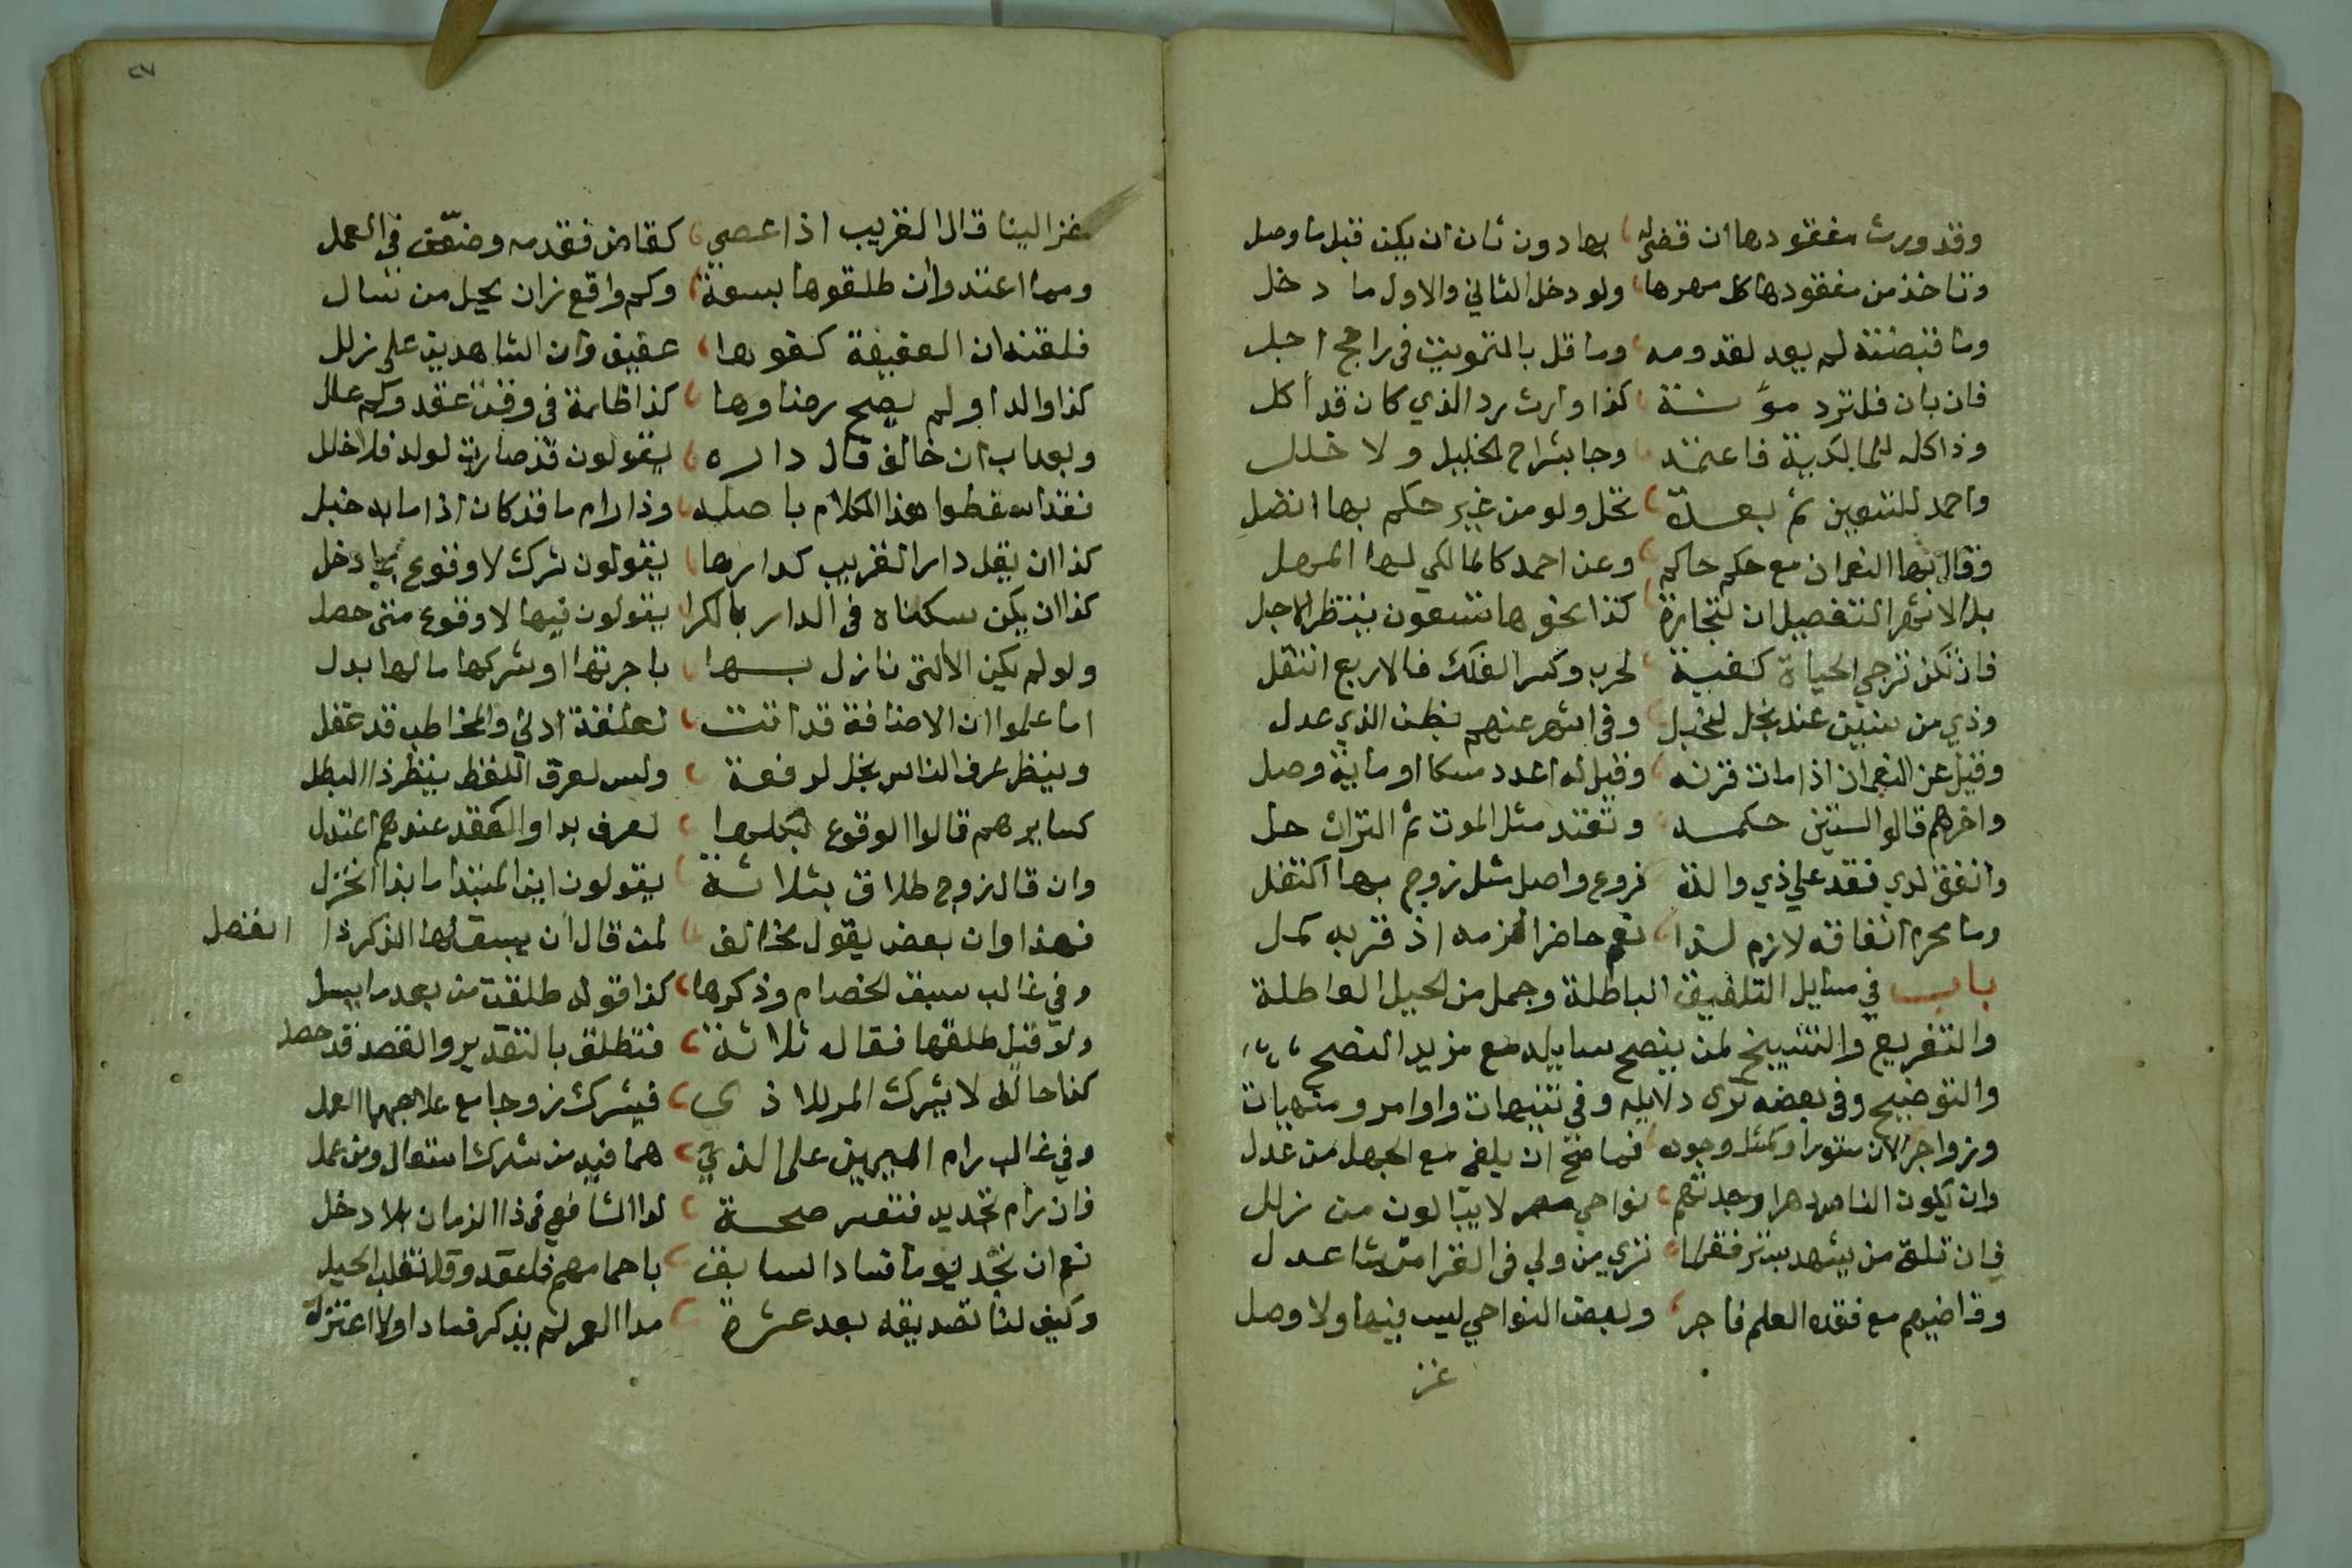 وقد ورث مفقودها ان قضى له بها دون ثان ان يكن قبل ما وصل
وتاخذ من مفقودها كل مهرها ولو دخل الثاني والاول ما دخل
وما قبضته لم يعد لقدومه وما قل بالتمويت في راجح اجل
فان بان فلترد مؤنة كذا وارث يرد الذي كان قد أكل
وذا كله للمالكية فاعتمد وجا بشراح الخليل ولا خلل
واحمد للتسعين ثم بعدة تحل ولو من غير حكم بها انفصل
وقال بها النعمان مع حكم حاكم وعن احمد كالمالكي لها المهل
بل الاشهر التفصيل ان لتجارة كذا نحوها تسعون ينتظر الاجل
فان تكن ترجي الحياة كغيبة لحرب وكسر الفلك فالاربع انتقل
وذي من سنين عند نجل لحنبل وفي اشهر عنهم بظن الذي عدل
وقيل عن النعمان اذا مات قرنه وقيل له اعدد مسكا او ماية وصل
واخرهم قالوا الستين حكمه وتعتد مثل الموت ثم التراث حل
وانفق لدي فقد علي ذي والذ فروع واصل مثل زوج بها اكتفل
وما محرم انفاقه لازم لذا نعم حاضرا الزمه اذ قربه كمل
باب في مسايل التلفيق الباطلة وجمل من الحيل العاطلة
والتفريع والتشييخ لمن ينصح سايله مع مزيد النصح
والتوضيح وفي بعضه ترى دلايله وفي تنبيهات واوامر ومنهيات
وزواجر الان ستورا وكمثل وجوده فما صح ان يلغي مع الجهل من عدل
وان يكون الناس دهرا وجدتهم نواحي مصر لا يبالون من زلل
فان تلق من يشهد بستر فقلما تري من ولي في القرا مثل شاعدل
وقاضيهم مع فقده العلم فاجر وبعض النواحي ليس فيها ولا وصل
غز
٢٧
غز الينا قال القريب اذا عصي كقاض فقدمه وضعّف في العمل
ومما اعتدوا ان طلقوها بسعة وكم واقع زان يحيل من سال
فلقنه ان العفيفة كفوها عقيق وان الشاهدين على زلل
كذا والد اولم يصح رضاوها كذا ظامة في وقت عقد وكم علل
وبعد باب ان خالف قال داره يقولون قد صارت لولد فلا خلل
فقد اسقطوا هذا الكلام باصله وذا رام ما قد كان اذا ما به خبل
كذا ان يقل دار القريب كدارها يقولون شرك لا وقوع بما دخل
كذا ان يكن سكناه في الدار بالكرا يقولون فيها لا وقوع متى حصل
ولو لم يكن الا التى نازل بها باجرتها او شركها ما لها بدل
اما علموا ان الاضافة قد اتت لعلقة ادني والمخاطب قد عقل
وينظر عرف الناس بخل لرفعة وليس لعرف اللفظ ينظر ذا البطل
كسايرهم قالوا الوقوع بكلها لعرف بدا والكفقد عندهم اعتدل
وان قال زوج طلاق بثلاثة يقولون اين المبتدا ما بذا انخزل
فهذا وان بعض يقول بخالف لمن قال ان يسبق لها الذكر ذا انفصل
وفي غالب سبق الخصام وذكرها كذا قوله طلقت من بعد ما يسل
ولو قيل طلقها فقال ثلاثة فتطلق بالتقدير والقصد قد حصل
كذا حالف لا يشرك المر ذي فيشرك زوجا مع علاجهما العمل
وفي غالب رام اليمين على الذي هما فيه من شرك استعال ومن عمل
فان رام تجديد فتفسر صحة لدا الشافعي في ذا الزمان بلا دخل
نعم ان نجد يوما فسادا لسابق باحمامهم فلعقد وقل تغلب الحيل
وكيف لنا تصديقه بعد عشرة مدا العمر لم يذكر فسادا ولا اعتزل